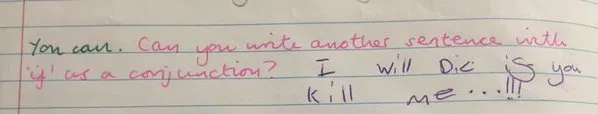 You can. Can you write another sentence with
'if' as a conjunction? I will Die if you
Kill me...!!!